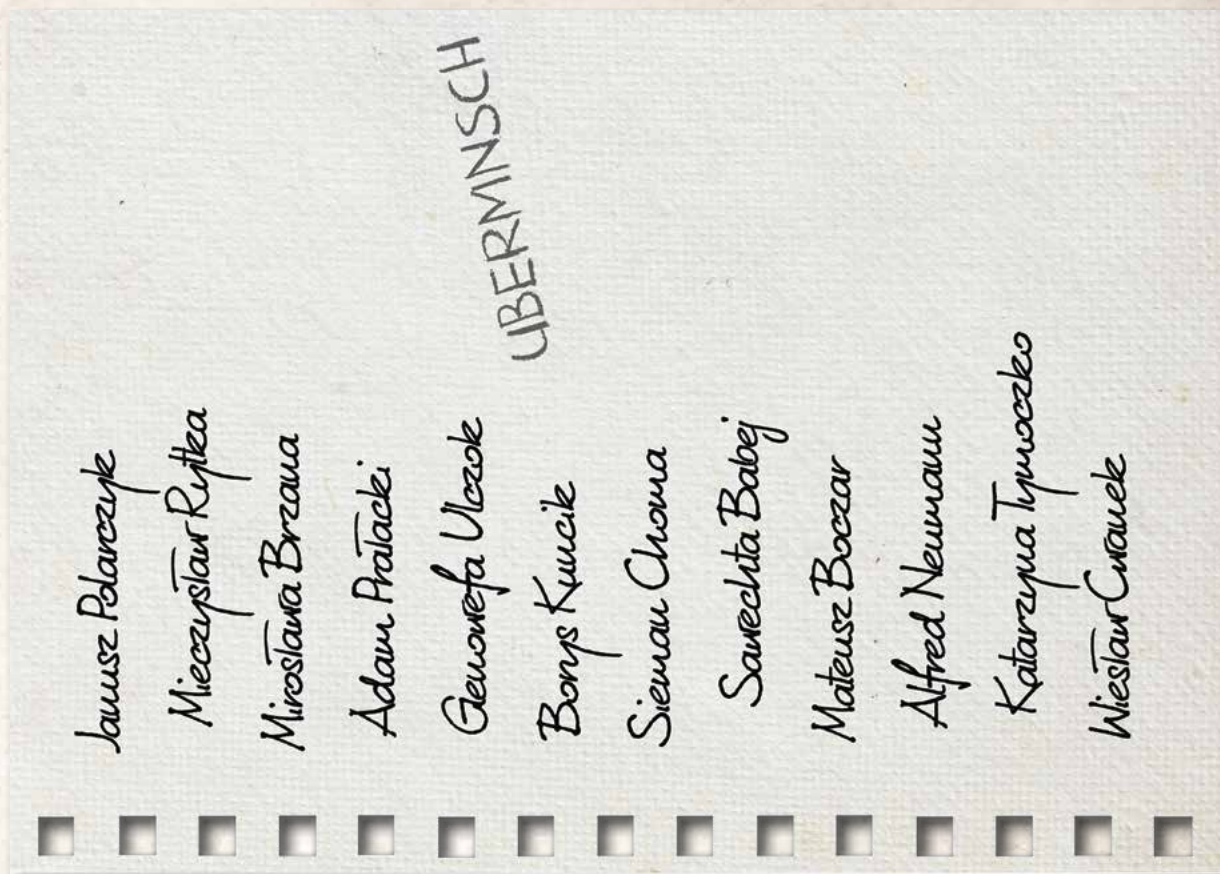 Janusz Polarczyk
Mieczysław Rytka
Mirosława Brzana
Adam Prałacki
Genowefa Ulczok
UBERMNSCH
Borys Kuncik
Sieman Choma
Sawechta Babej
Mateusz Boczar
Alfred Neumann
Katarzyna Tymoczko
Wiesław Cwanek